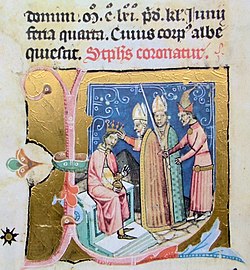 domini. mͦ. cͦ. lxii. pͥd. kl'. Junij
feria quarta. Cuius corpꝰ albe
quiescit. Stephs coronatur.